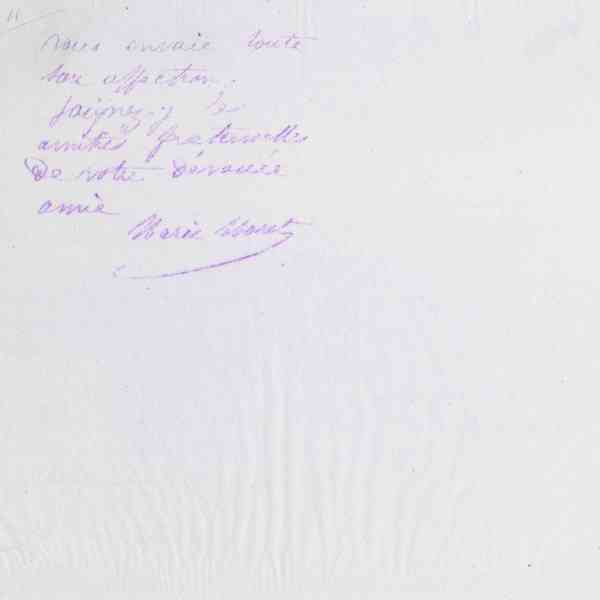 11
vous envoie toute
son affection.
Joignez-y les
amitiés fraternelles
De votre Dévouée
amie
Marie Moret